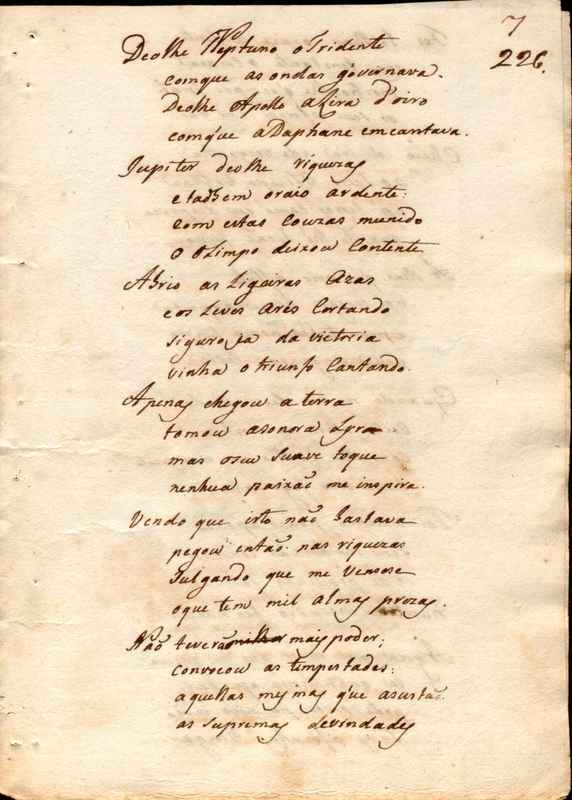 7
226.
Deolhe Neptuno o Tridente
comque as ondas governava.
Deolhe Apollo a Lira d'oiro
comq'ue a Daphane emcantava.
Jupiter deolhe riquezas
etaobem oraio ardente:
com estas couzas munido
o Olimpo deixou contente
Abrio as Ligeiras azas
e os Leves ares Cortando
siguro ja da victoria
vinha o triunfo Cantando.
Apenas chegou a terra
tomou asonora Lyra
mas oseu suave toque
nenhua paixaõ me inspira.
Vendo que isto naõ bastava
pegou entaõ nas riquezas
Julgando que me vensese
oque tem mil almas prezas.
Naõ teveraõ mais poder;
convocou as tempestades:
aquellas mesmas q'ue asustaõ
as supremas devindades